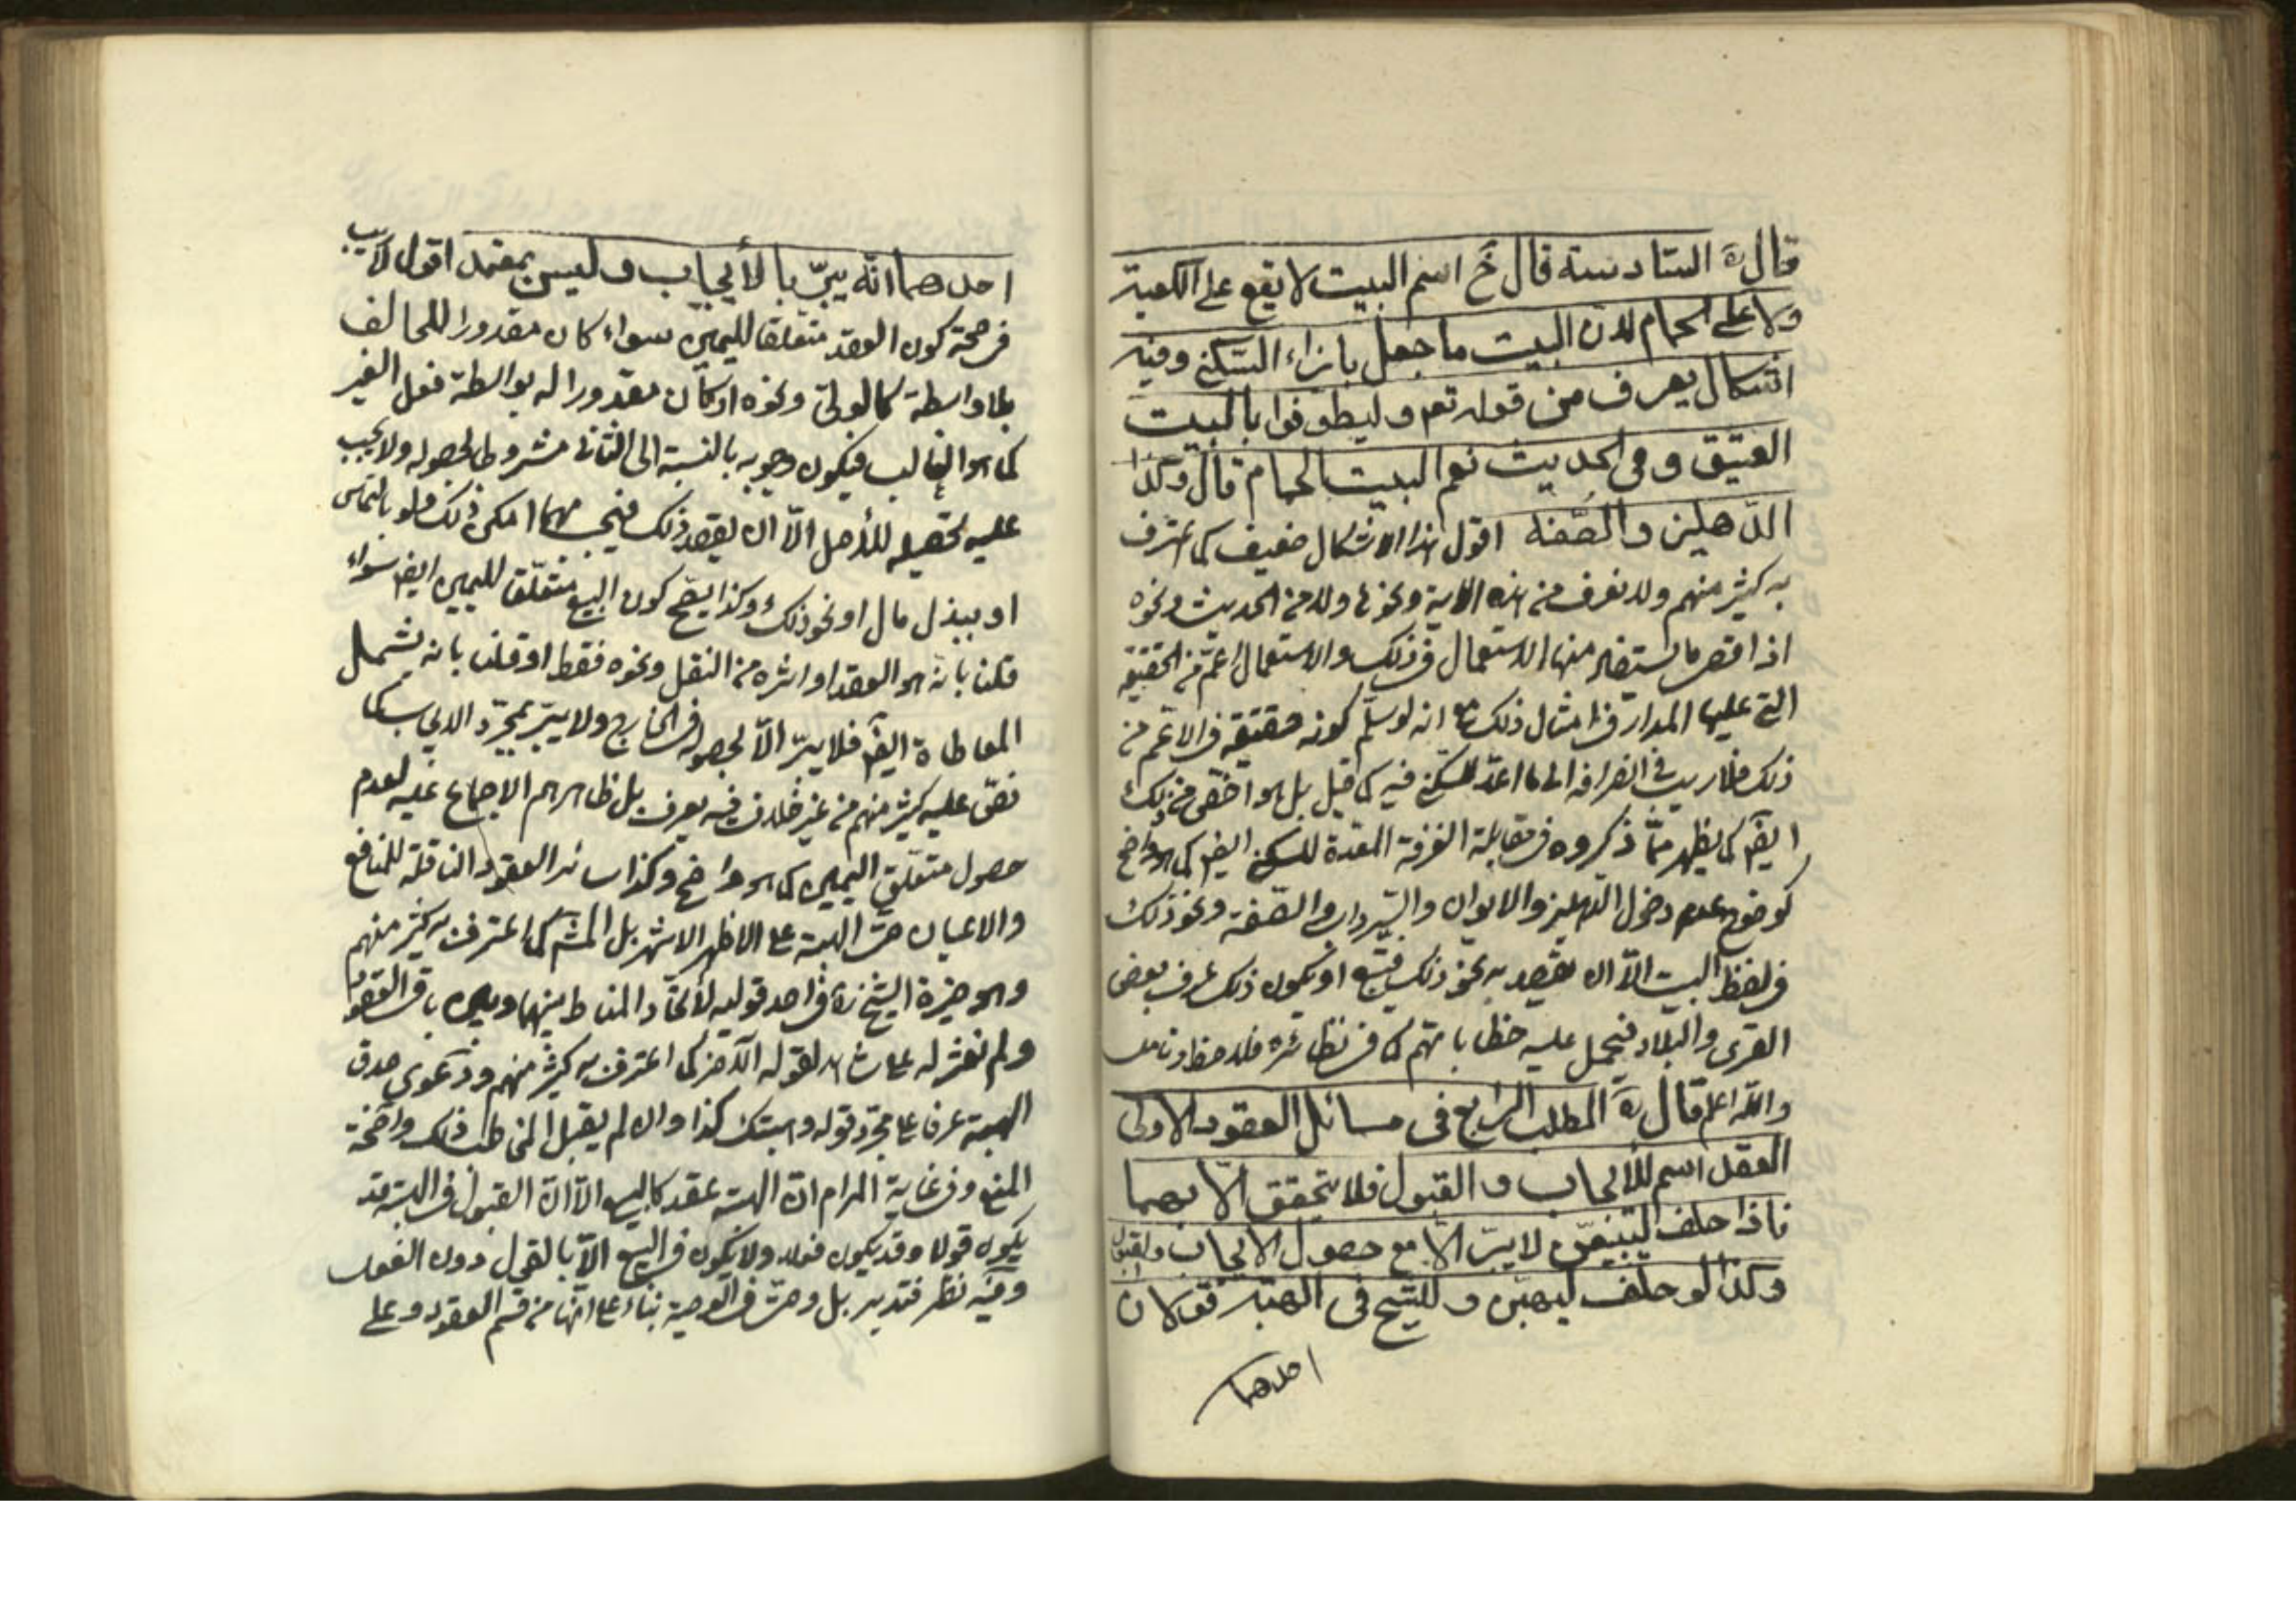 قال ره السادسة قال خ اسم البيت لا يقع على الكعبة
ولا على الحمام لان البيت ما جعل بازاء السكنى وفيه
اشكال يعرف من قوله تعم وليطوفوا بالبيت
العتيق وفي الحديث نعم البيت الحمام قال وكذا
الدهليز والصفة اقول هذا الاشكال ضعيف كما اعترف
به كثير منهم ولا نعرف من هذه الاية ونحوها ولا من الحديث ونحوه
اذ اقصى ما يستفاد منها الاستعمال في ذلك والاستعمال اعم من الحقيقة
التي عليها المدار في امثال ذلك مع انه لو سلم كونه حقيقة في الاعم من
ذلك فلا ريب في انصرافه الى ما اعد للسكنى فيه كما قيل بل هو اخص من ذلك
ايضا كما يظهر مما ذكروه في مقابلة الغرفة المعدة للسكنى ايضا كما هو واضح
كوضوح عدم دخول الدهليز والايوان والسرداب والصفة ونحو ذلك
في لفظ البيت الا ان يقصد به نحو ذلك فيتبع او يكون ذلك عرف بعض
القرى والبلاد فيحمل عليه خطاباتهم كما في نظائره فلاحظ وتامل
والله اعلم قال ره المطلب الرابع في مسائل العقود الاولى
العقد اسم للايجاب والقبول فلا يتحقق الا بهما
فاذا حلف ليبيعن لا يبر الا مع حصول الايجاب والقبول
وكذا لو حلف ليهبن وللشيخ في الهبة قولان
احدهما
احدهما انه يبر بالايجاب وليس بمعتمد اقول لا ريب
في صحة كون العقد متعلقا لليمين سواء كان مقدورا للحالف
بلا واسطة كالولي ونحوه او كان مقدورا له بواسطة فعل الغير
كما هو الغالب فيكون وجوبه بالنسبة الى الثاني مشروطا بحصوله ولا يجب
عليه تحصيله للاصل الا ان يقصد ذلك فيجب مهما امكن ذلك ولو بالتماس
او ببذل مال او نحو ذلك وكذا يصح كون البيع متعلقا لليمين ايضا سواء
قلنا بانه هو العقد او اثره من النقل ونحوه فقط او قلنا بانه يشمل
المعاطاة ايضا فلا يبر الا بحصوله في الخارج ولا يبر بمجرد الايجاب كما
نص عليه كثير منهم من غير خلاف فيه يعرف بل ظاهرهم الاجماع عليه لعدم
حصول متعلق اليمين كما هو واضح وكذا سائر العقود الناقلة للمنافع
والاعيان حتى الهبة على الاظهر الاشهر بل المشهور كما اعترف به كثير منهم
وهو خيرة الشيخ ره في احد قوليه لاتحاد المناط بينها وبين باقي العقود
ولم نعثر له على شاهد لقوله الآخر كما اعترف به كثير منهم ودعوى صدق
الهبة عرفا على مجرد قوله وهبتك كذا وان لم يقبل المخاطب ذلك واضحة
المنع وفي غاية المرام ان الهبة عقد كالبيع الا ان القبول في الهبة قد
يكون قولا وقد يكون فعلا ولا يكون في البيع الا بالقول دون الفعل
وفيه نظر فتدبر بل وحتى في الوصية بناء على انها من قسم العقود وعلى